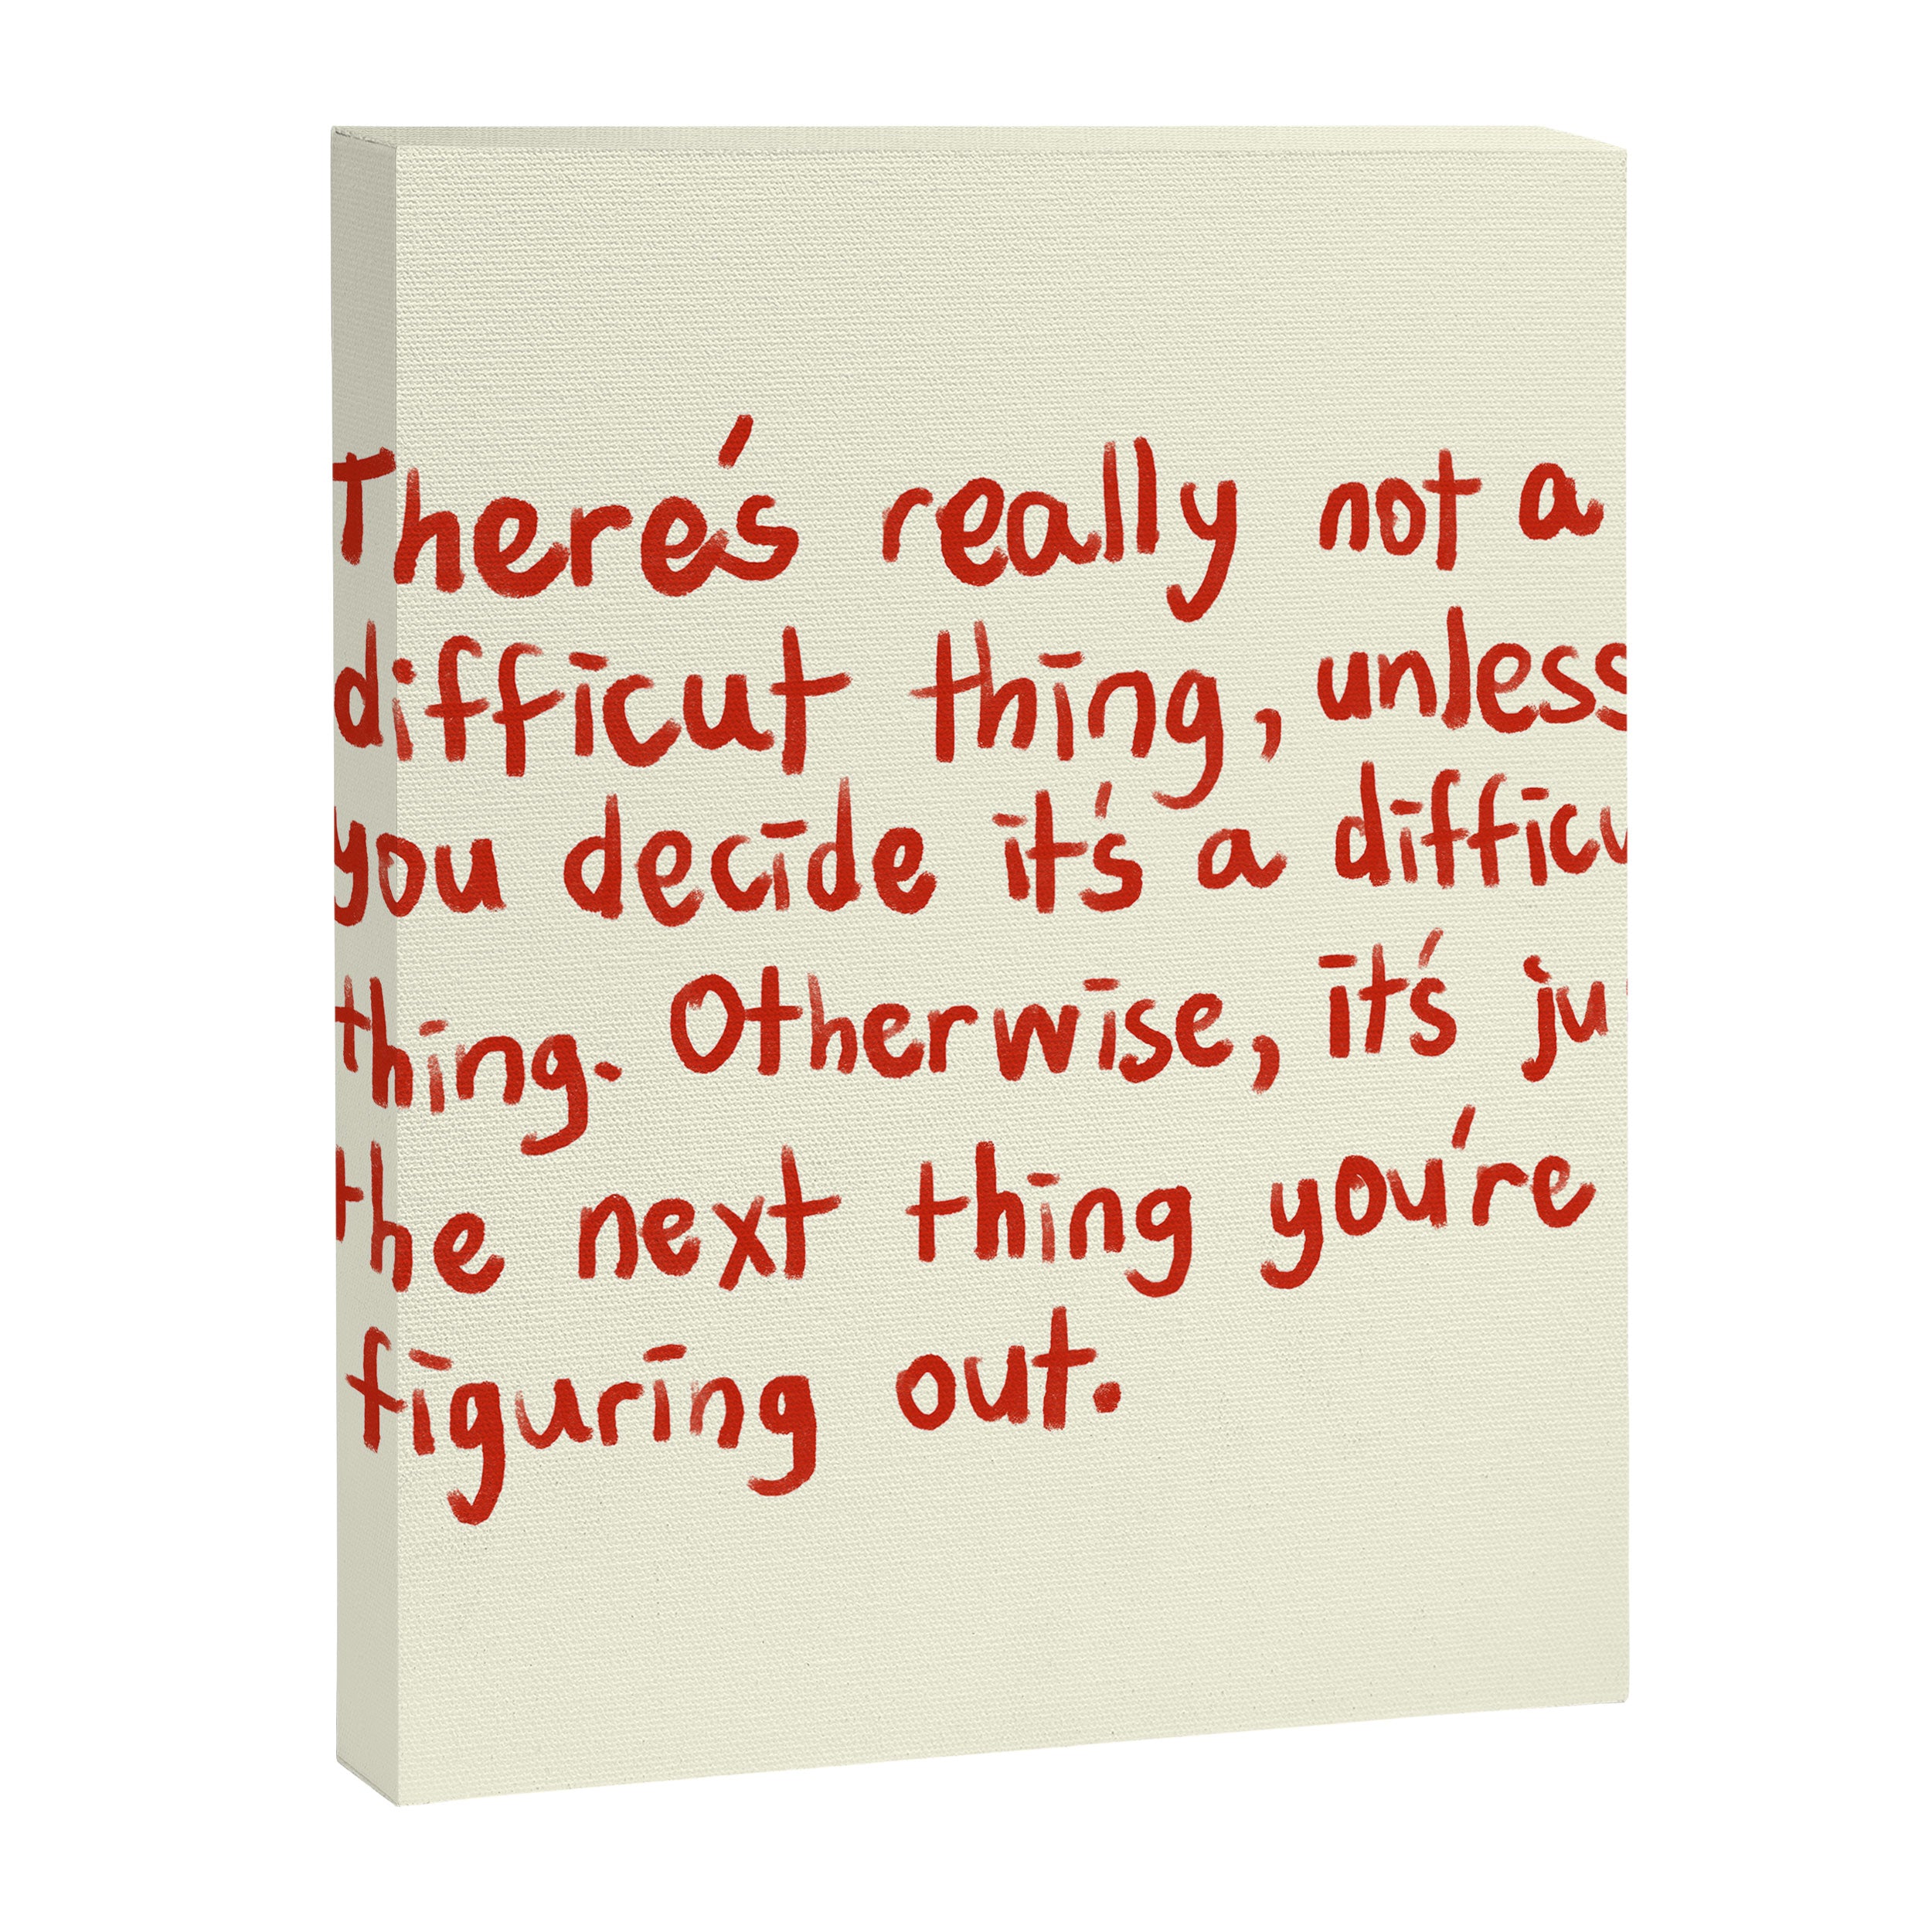 There's really not a
difficut thing, unless
you decide it's a difficu
thing. Otherwise, it's ju
the next thing you're
figuring out.